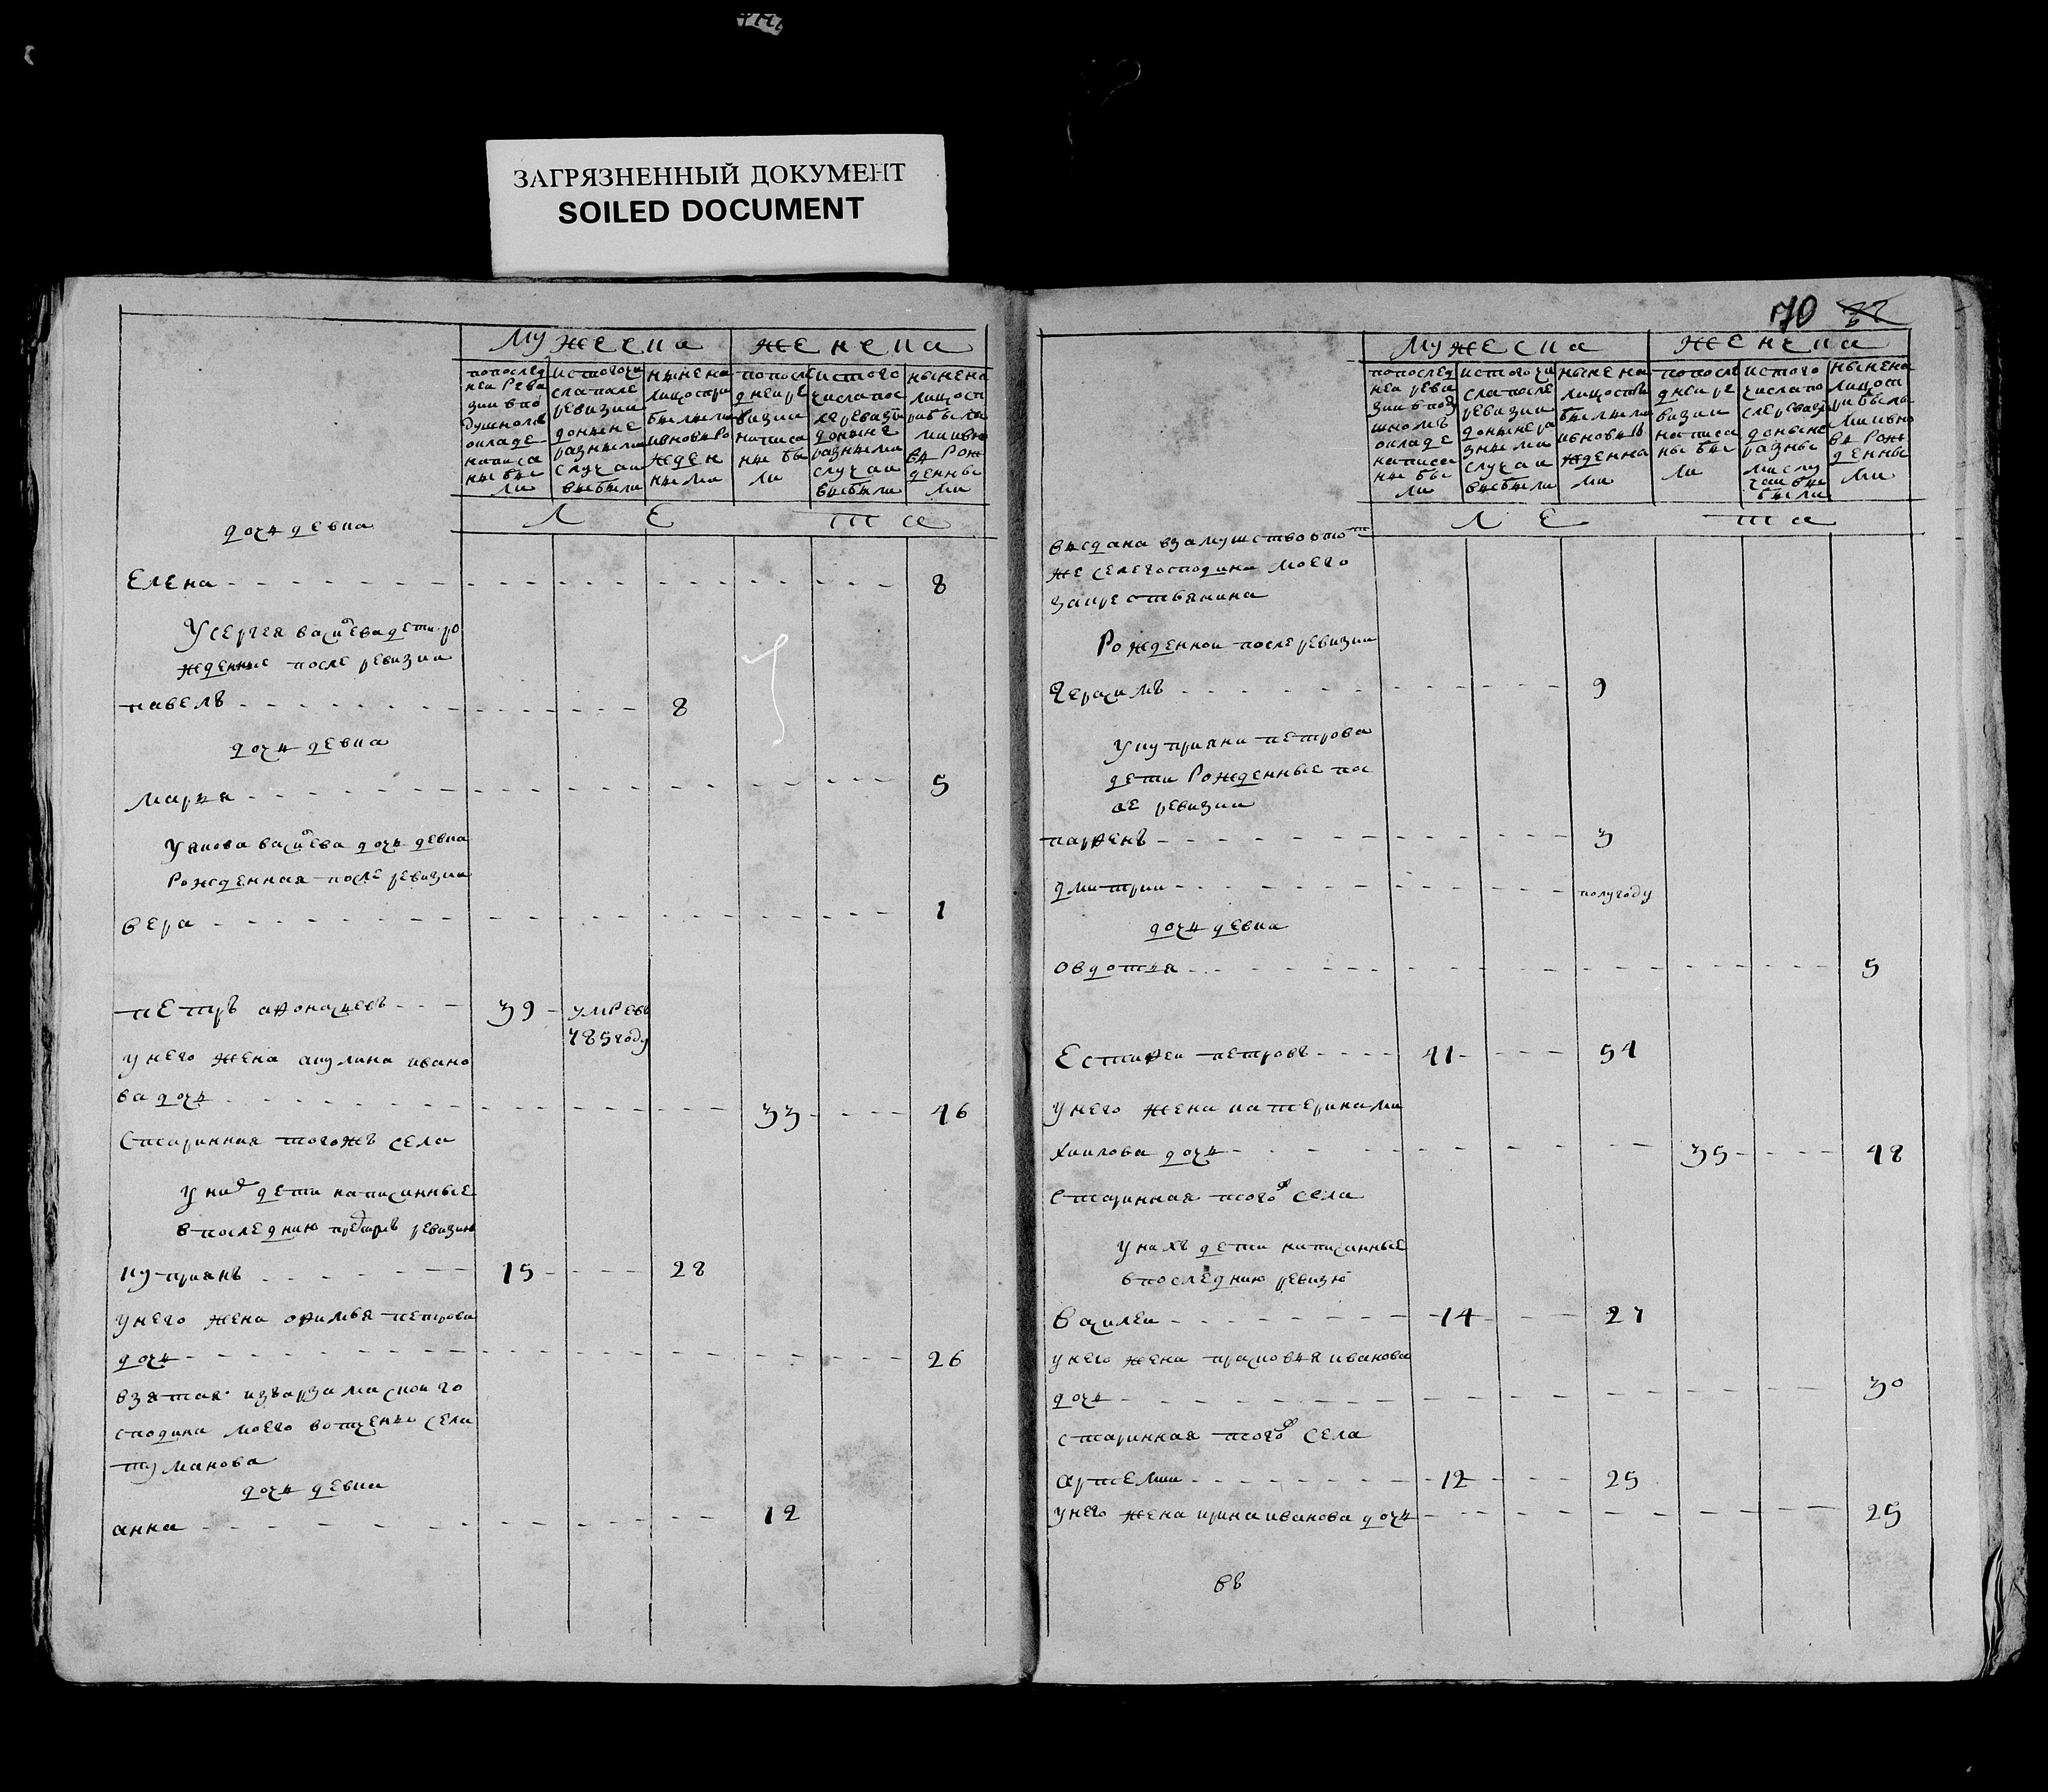 ЗАГРЯЗНЕННЫЙ ДОКУМЕНТ
SOILED DOCUMENT
мужеска женска
по послед ней реви зии в по душномъ окладе написа ны бы ли
ис того чи сла после ревизии до ныне разными случаи выбыли
ныне на лицо с при былыми и вновь ро жден ными
по после дней ре визии написа ны бы ли
ис того числа пос ле ревизи до ныне разными случаи выбыли
ныне на лицо с п рибылы ми и вно вь рож денны ми
ле та
дочь девка
Елена 8
У сергея васильева дети ро
жденные после ревизии
павелъ 8
дочь девка
марья 5
У якова васильева дочь девка
рожденная после ревизии
вера 1
петръ афонасьевъ 39 умре въ
785 году
у него жена акулина ивано
ва дочь 33 46
старинная тогожъ села
у них дети написанные
в последнию пред сим ревизию
куприянъ 15 28
у него жена офимья петрова
дочь 26
взятая из варзамаской го
сподина моего вотчены села
туманова
дочь девка
анна 12
70
мужеска женска
по послед ней реви зии в под ушномъ окладе написа ны бы ли
ис того чи сла после ревизии до ныне ра зными случаи выбыли
ныне на лицо с при былыми и вновь ро жденны ми
по после дней ре визии написа ны бы ли
ис того числа по сле ревизи до ныне разны ми слу чаи вы были
ныне на лицо с п рибылы ми и вно вь рож денны ми
ле та
выдана в замуство в то
же селе господина моего
за крестьянина
Рожденной после ревизии
Герасимъ 9
У куприяна петрова
дети рожденные по
ле ревизии
парфенъ 3
дмитрии полугоду
дочь девка
овдотья 5
Естифеи петровъ 41 54
у него жена катерина ми
хаилова дочь 35 48
старинная того ж села
у нихъ дети написанные
в последнию ревизю
василеи 14 27
у него жена прасковья иванова
дочь 30
старинная того ж села
артемии 12 25
у него жена ирина иванова дочь 25